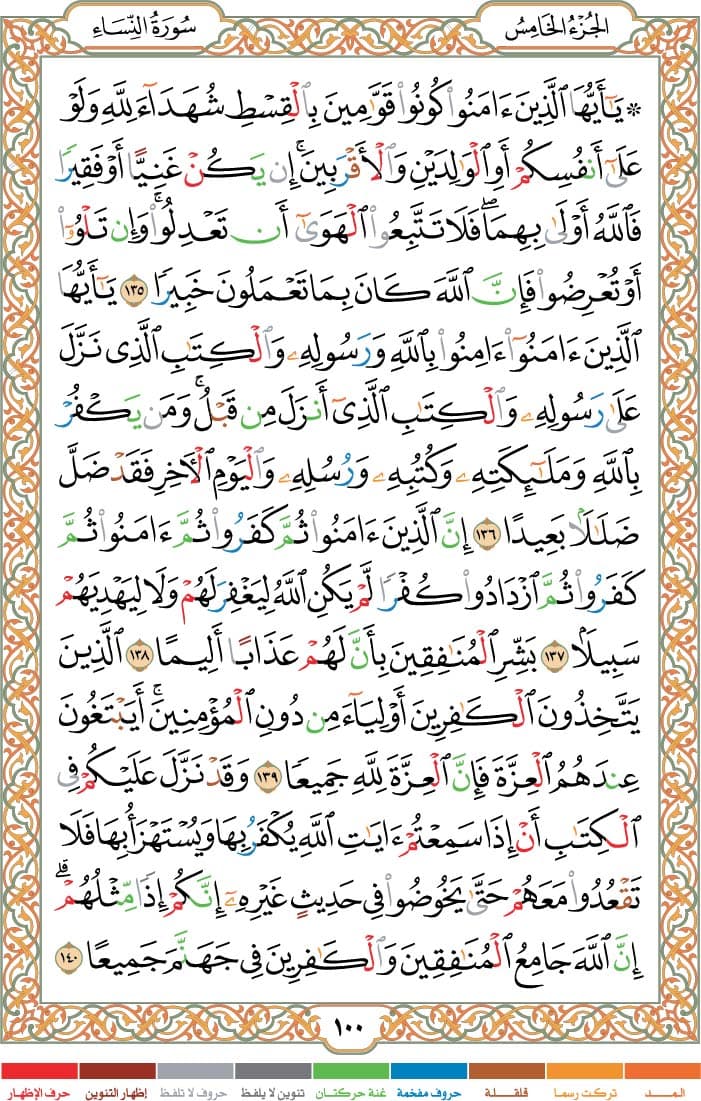 الجزء الخامس
سورة النساء
۞ يَٰٓأَيُّهَا ٱلَّذِينَ ءَامَنُوا۟ كُونُوا۟ قَوَّٰمِينَ بِٱلْقِسْطِ شُهَدَآءَ لِلَّهِ وَلَوْ
عَلَىٰٓ أَنفُسِكُمْ أَوِ ٱلْوَٰلِدَيْنِ وَٱلْأَقْرَبِينَ ۚ إِن يَكُنْ غَنِيًّا أَوْ فَقِيرًا
فَٱللَّهُ أَوْلَىٰ بِهِمَا ۖ فَلَا تَتَّبِعُوا۟ ٱلْهَوَىٰٓ أَن تَعْدِلُوا۟ ۚ وَإِن تَلْوُۥٓا۟
أَوْ تُعْرِضُوا۟ فَإِنَّ ٱللَّهَ كَانَ بِمَا تَعْمَلُونَ خَبِيرًا ١٣٥ يَٰٓأَيُّهَا
ٱلَّذِينَ ءَامَنُوٓا۟ ءَامِنُوا۟ بِٱللَّهِ وَرَسُولِهِۦ وَٱلْكِتَٰبِ ٱلَّذِى نَزَّلَ
عَلَىٰ رَسُولِهِۦ وَٱلْكِتَٰبِ ٱلَّذِىٓ أَنزَلَ مِن قَبْلُ ۚ وَمَن يَكْفُرْ
بِٱللَّهِ وَمَلَٰٓئِكَتِهِۦ وَكُتُبِهِۦ وَرُسُلِهِۦ وَٱلْيَوْمِ ٱلْءَاخِرِ فَقَدْ ضَلَّ
ضَلَٰلًۢا بَعِيدًا ١٣٦ إِنَّ ٱلَّذِينَ ءَامَنُوا۟ ثُمَّ كَفَرُوا۟ ثُمَّ ءَامَنُوا۟ ثُمَّ
كَفَرُوا۟ ثُمَّ ٱزْدَادُوا۟ كُفْرًا لَّمْ يَكُنِ ٱللَّهُ لِيَغْفِرَ لَهُمْ وَلَا لِيَهْدِيَهُمْ
سَبِيلًۢا ١٣٧ بَشِّرِ ٱلْمُنَٰفِقِينَ بِأَنَّ لَهُمْ عَذَابًا أَلِيمًا ١٣٨ ٱلَّذِينَ
يَتَّخِذُونَ ٱلْكَٰفِرِينَ أَوْلِيَآءَ مِن دُونِ ٱلْمُؤْمِنِينَ ۚ أَيَبْتَغُونَ
عِندَهُمُ ٱلْعِزَّةَ فَإِنَّ ٱلْعِزَّةَ لِلَّهِ جَمِيعًا ١٣٩ وَقَدْ نَزَّلَ عَلَيْكُمْ فِى
ٱلْكِتَٰبِ أَنْ إِذَا سَمِعْتُمْ ءَايَٰتِ ٱللَّهِ يُكْفَرُ بِهَا وَيُسْتَهْزَأُ بِهَا فَلَا
تَقْعُدُوا۟ مَعَهُمْ حَتَّىٰ يَخُوضُوا۟ فِى حَدِيثٍ غَيْرِهِۦٓ ۚ إِنَّكُمْ إِذًا مِّثْلُهُمْ ۗ
إِنَّ ٱللَّهَ جَامِعُ ٱلْمُنَٰفِقِينَ وَٱلْكَٰفِرِينَ فِى جَهَنَّمَ جَمِيعًا ١٤٠
١٠٠
المـــد تركت رسما قلقـلـة حروف مفخمة غنة حركتان تنوين لا يلفظ حروف لا تلفظ إظهار التنوين حرف الإظهار